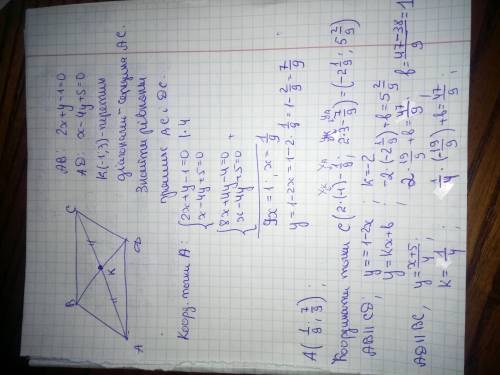 B C
K
A D
AB: 2x+y-1=0
AD: x-4y+5=0
K(-1;3)-перетин
діагоналей - середина AC.
Знайти рівняння
прямих AC і DC.
Коорд. точки A: {2x+y-1=0 |·4
{x-4y+5=0
{8x+4y-4=0 +
x-4y+5=0
9x=1, x=1/9
y=1-2x=1-2·1/9=1-2/9=7/9
A(1/9; 7/9);
xK xA yK yA
Координати точки C(2·(-1)-1/9; 2·3-7/9)=(-2 1/9; 5 2/9)
AB||CD; y=1-2x; k=-2
y=kx+b; -2(-2 1/9)+b=5 2/9
2·19/9+b=47/9; b=(47-38)/9=1
AD||BC; y=(x+5)/4;
k=1/4; 1/4·(-19/9)+b=47/9;